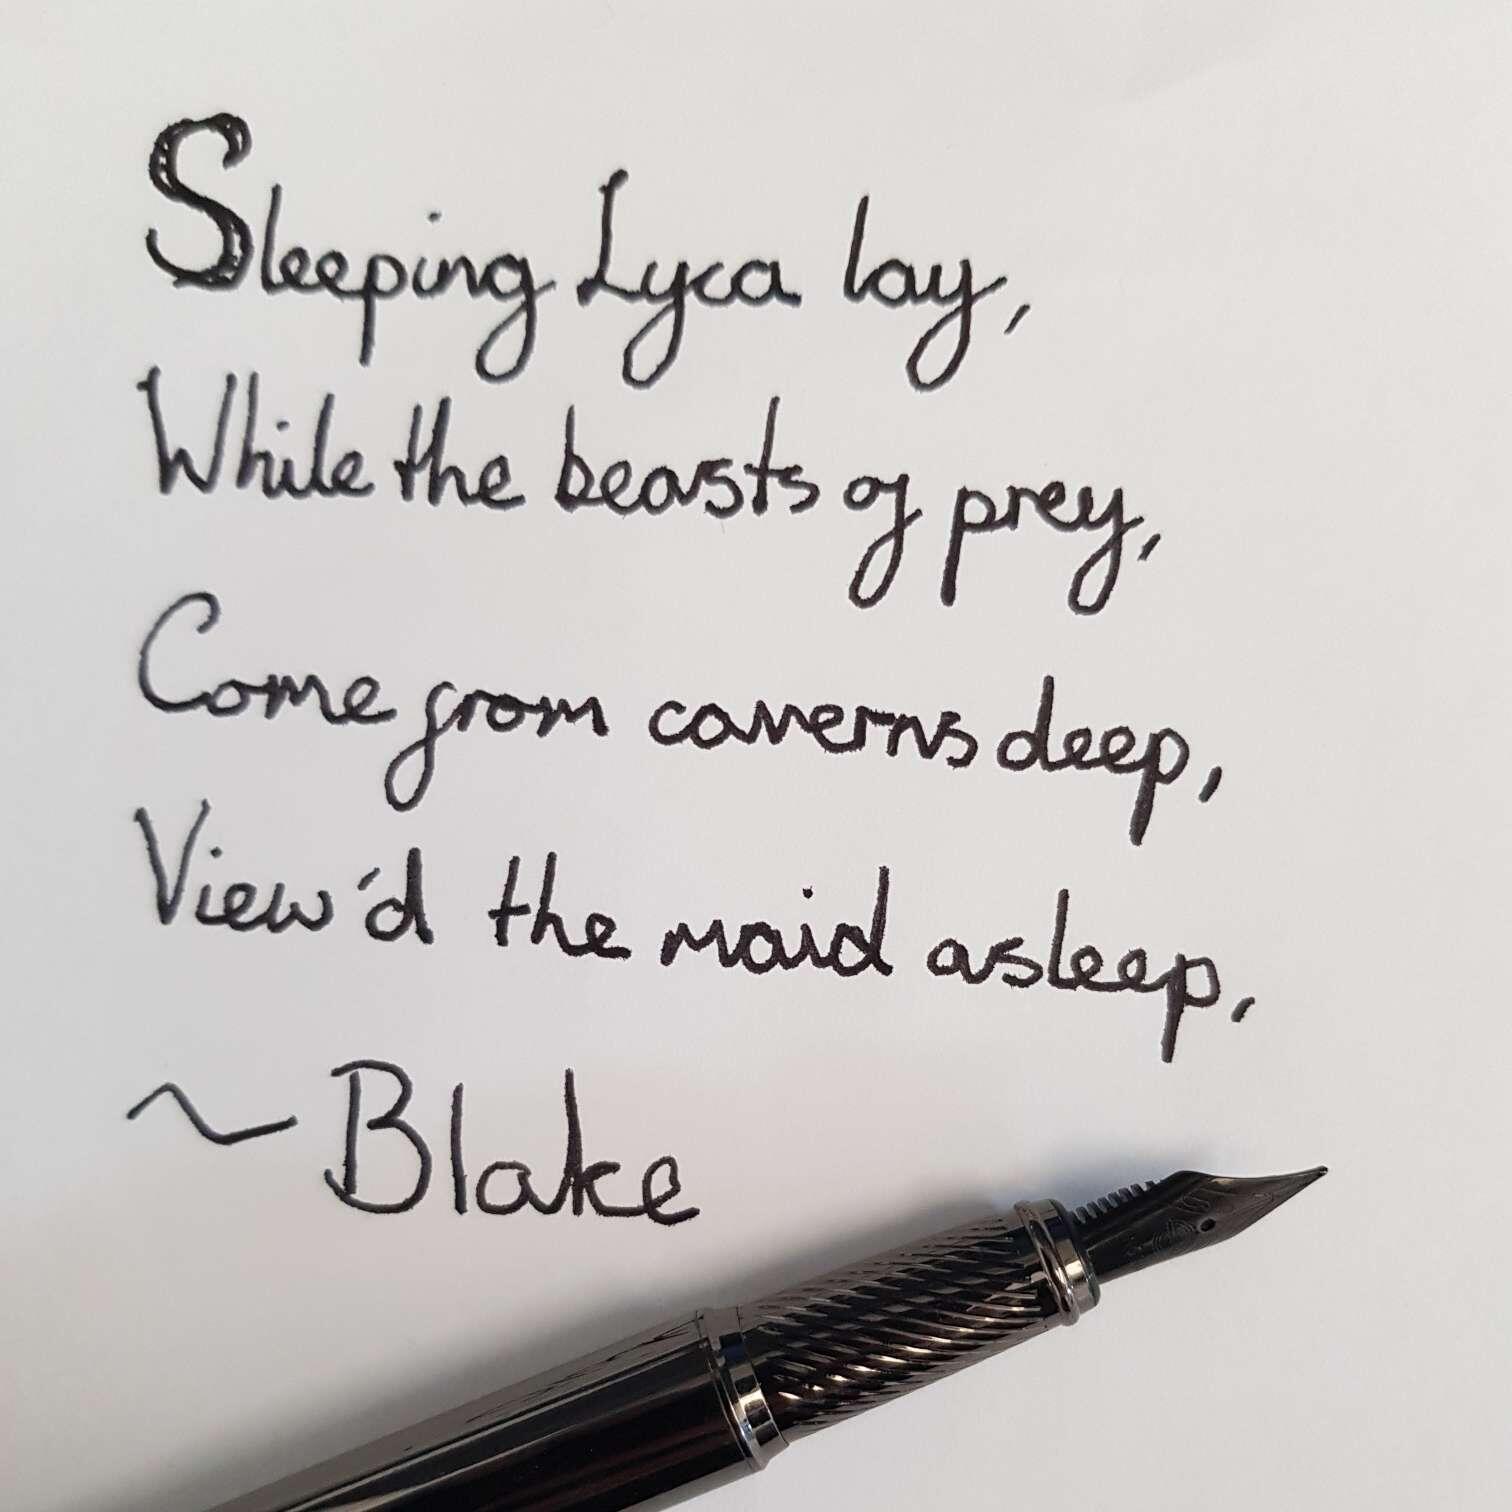 Sleeping Lyca lay,
While the beasts of prey,
Come from caverns deep,
View'd the maid asleep,
~ Blake